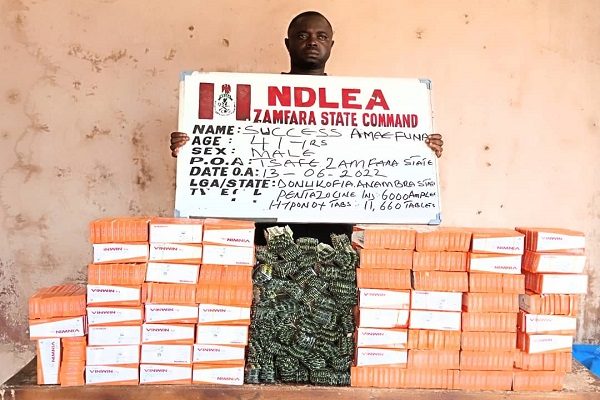 NDLEA
ZAMFARA STATE COMMAND
NAME: SUCCESS AMAEFUNA
AGE: 41-YRS
SEX: MALE
P.O.A: TSAFE ZAMFARA STATE
DATE O.A: 13-06-2022
LGA/STATE: DONUKOFIA, ANAMBRA STATE
PENTAZOCINE INJ 6000 AMPLES
HYPONOX TABS: 11,660 TABLETS
VINWIN
NIMNIA